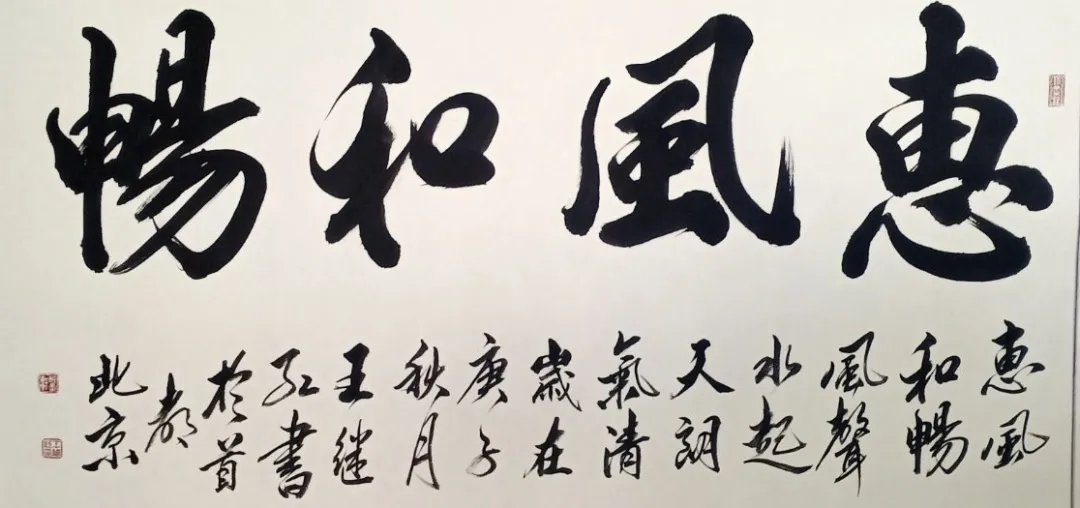 惠風和暢
惠風
和暢
風聲
水起
天朗
氣清
歲在
庚子
秋月
王继
红書
於首
都
北京